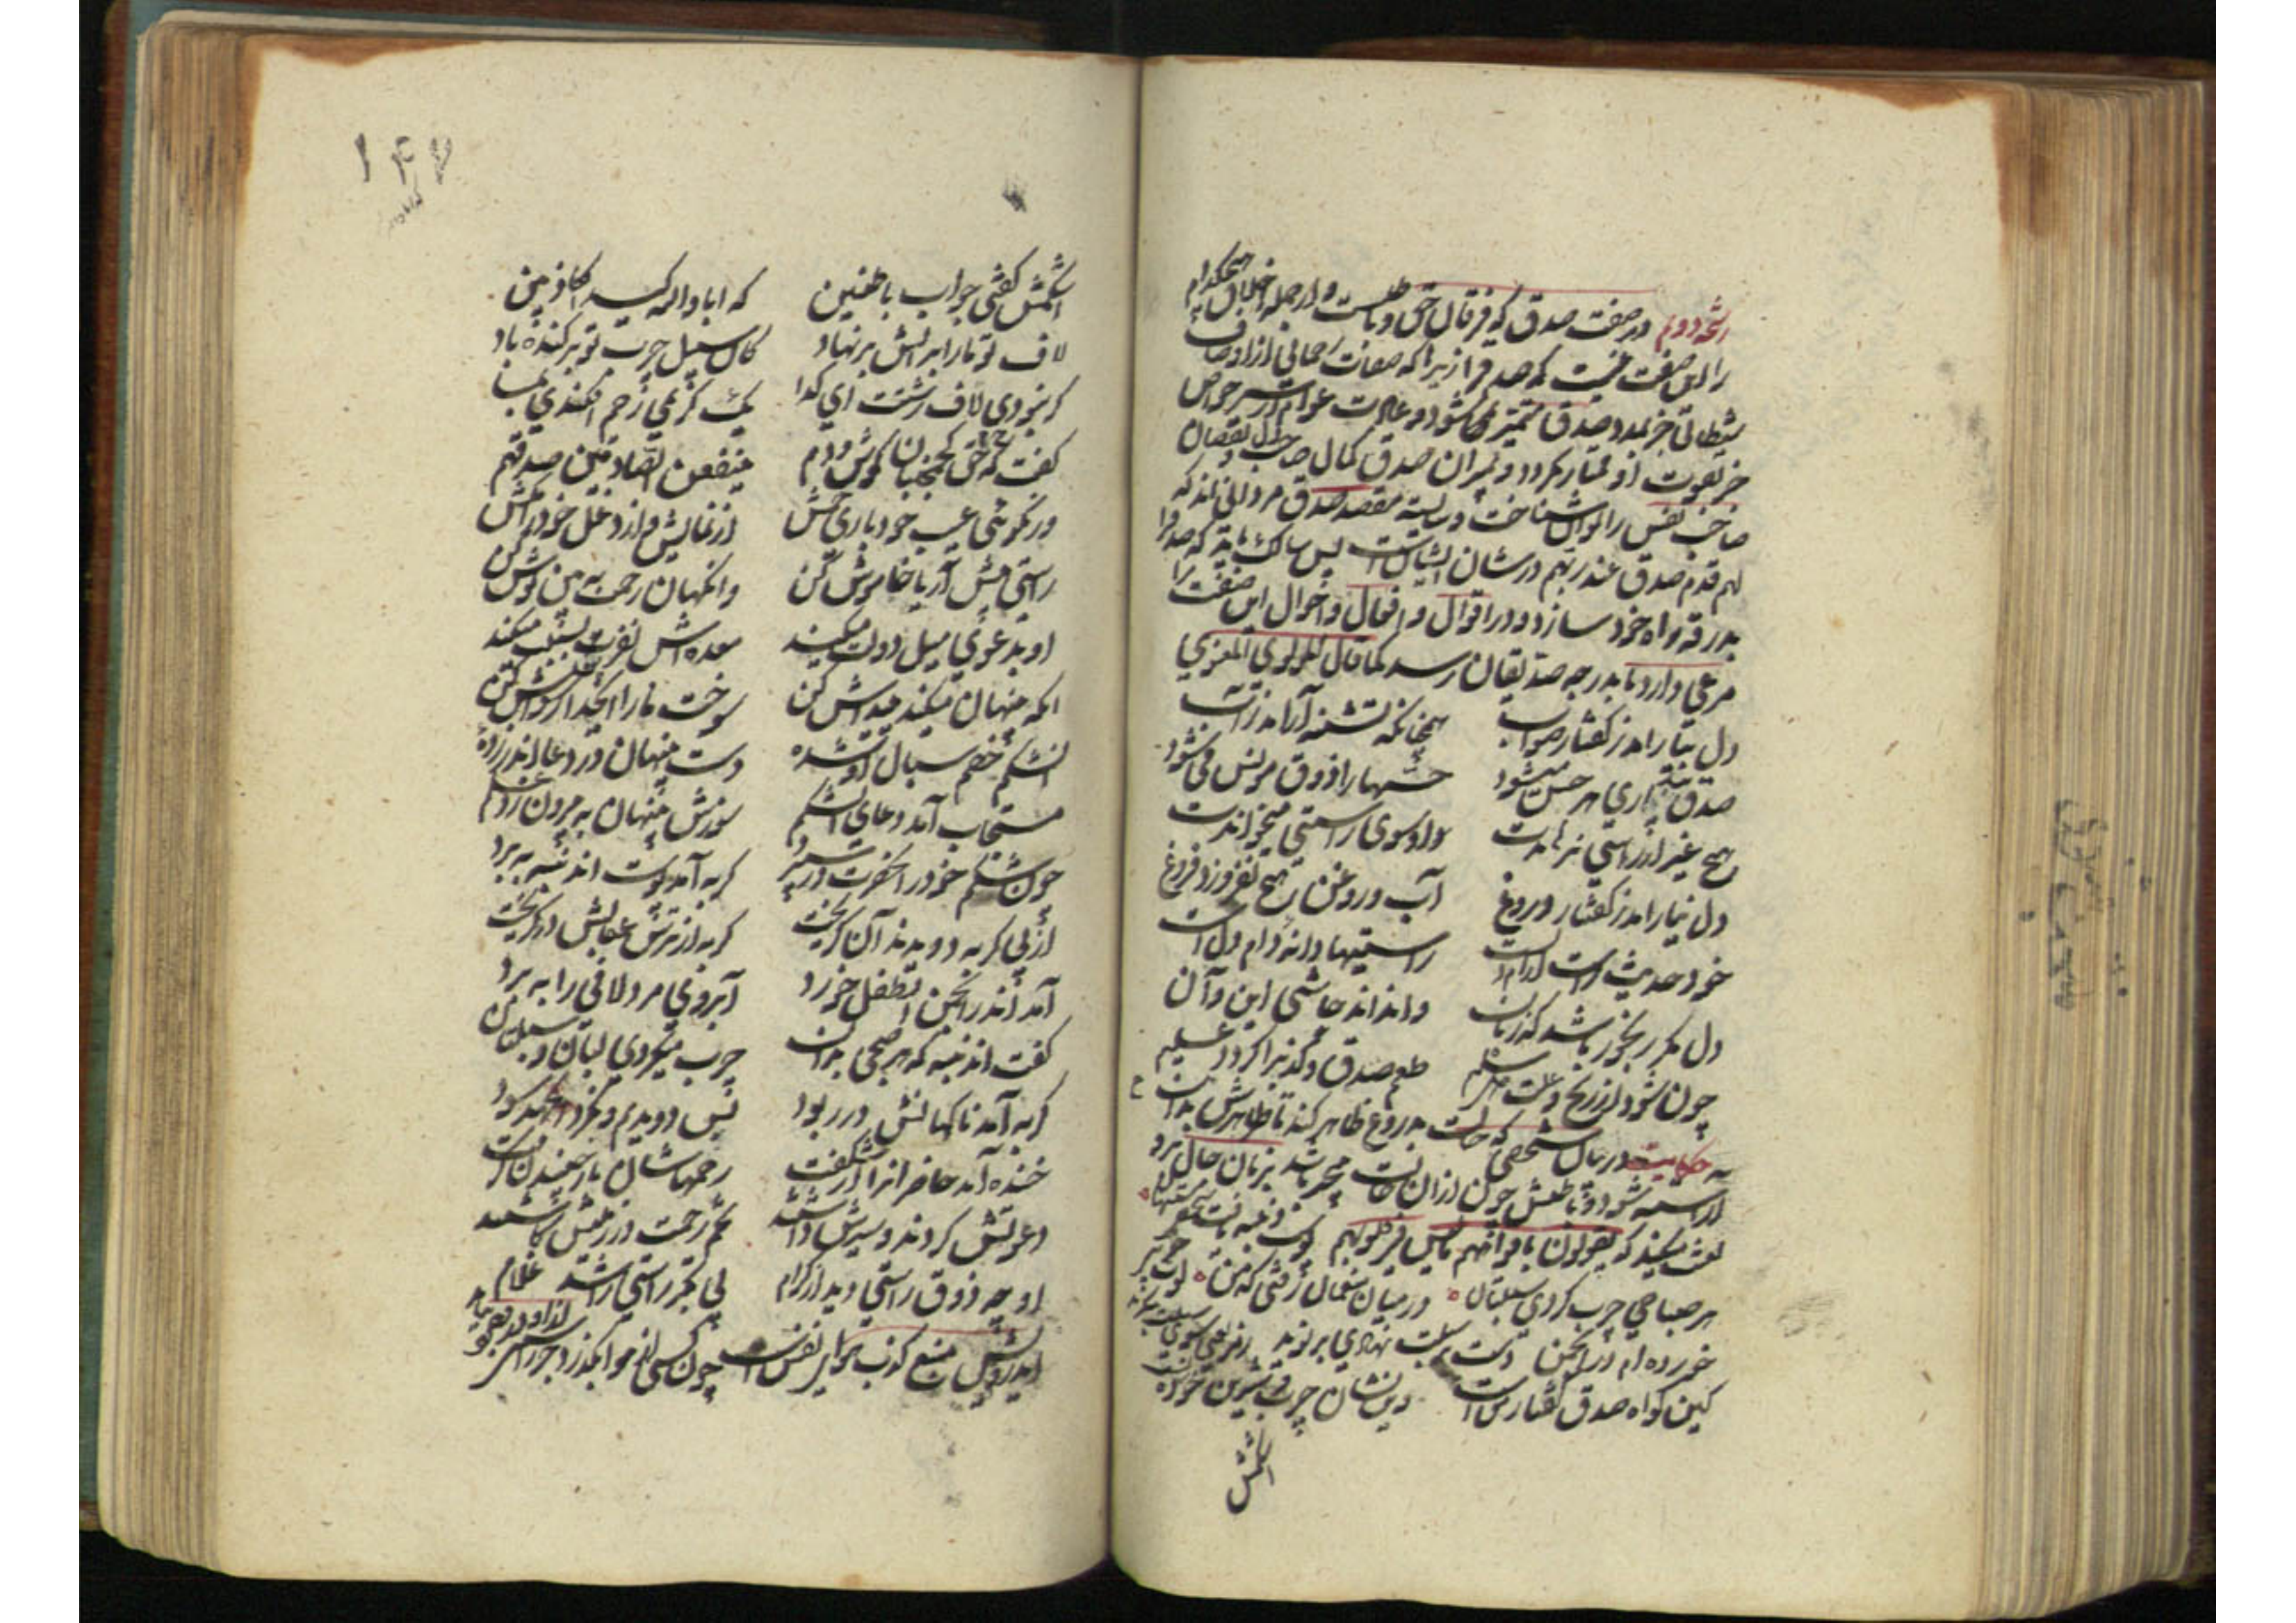 رشحه دوم در صفت صدق که فرقان حق و باطلست و از جمله اخلاق هیچکدام
را این صفت نیست که صدق را زیرا که صفات رحمانی از اوصاف
شیطانی جز بمدد صدق متمیز نمی شود و عادت عوام از سر خواص
جز بقوت او ممتاز نگردد و بمیزان صدق کمال صاحب دل و نقصان
صاحب نفس را توان شناخت و شایسته مقصد صدق مردانی اند که
لهم قدم صدق عند ربهم در شان ایشانست پس سالک باید که صدق را
بدرقه راه خود سازد و در اقوال و افعال و احوال این صفت را
مرعی دارد تا بدرجه صدیقان رسد کما قال المولوی المعنوی
دل بیارامد ز گفتار صواب همچنانکه تشنه آرامد ز آب
صدق بیداری هر حس میشود حسها را ذوق مونس می شود
هیچ غیر از راستی نرهاندت داد سوی راستی میخواندت
دل نیارامد ز گفتار دروغ آب و روغن هیچ نفروزد فروغ
در حدیث راست آرام دلست راستیها دانه دام دلست
دل مگر رنجور باشد که زبان داند اند چاشنی این و آن
چون شود از رنج و علت دل سلیم طعم صدق و کذب را گردد علیم
حکایت در حال شخصی که حالت بدروغ ظاهر کند تا ظاهرش بدان
آراسته شود و باطنش چون از آن حالت بیخبر باشد بزبان حال برو
لعنت میکند که یقولون بافواههم ما لیس فی قلوبهم پوست دنبه یافت شخصی مستهان
هر صباحی چرب کردی سبلتان در میان منعمان رفتی که من لوت چرب
خورده ام در انجمن دست بر سبلت نهادی بر نوید رمز یعنی سوی سبلت بنگرید
کین گواه صدق گفتار منست وین نشان چرب و شیرین خوردنست
اشکمش
۱۴۷
اشکمش گفتی جواب باطنین که اباد الله کید الکاذبین
لاف تو ما را بر آتش بر نهاد کان سبیل چرب تو بر کنده باد
گر نبودی لاف زشتت ای گدا یک کریمی رحم افکندی بما
گفت حق که کج مجنبان گوش و دم ینفعن الصادقین صدقهم
ور نگوئی عیب خود باری خمش از نمایش و از دغل خود را مکش
راستی پیش آر یا خاموش کن وانگهان رحمت ببین و نوش کن
او بدعوی میل دولت میکند معده اش نفرت سبلت میکند
انکه پنهان میکند پیداش کن سوخت ما را ای خدا رسواش کن
اشکم خصم سبال او شده دست پنهان در دعا اندر زده
مستجاب آمد دعای اشکم سوزش پنهان به بیرون زد علم
چون شکم خود را بحضرت در سپرد گربه آمد پوست آن دنبه به برد
از پی گربه دویدند آن گریخت گربه از ترس عتابش در گریخت
آمد اندر انجمن آن طفل خورد آبروی مرد لافی را به برد
گفت آن دنبه که هر صبحی بدان چرب میکردی لبان و سبلتان
گربه آمد ناگهانش در ربود پس دویدیم و نکرد آن جهد سود
خنده آمد حاضرانرا از شگفت رحمهاشان باز جنبیدن گرفت
دعوتش کردند و سیرش داشتند تخم رحمت در زمینش کاشتند
او چه ذوق راستی دید از کرام بی تکبر راستی را شد غلام
ای درویش منبع کذب هوای نفسست چون کسی از هوا بگذرد جز راستی
از او در وجود نیاید